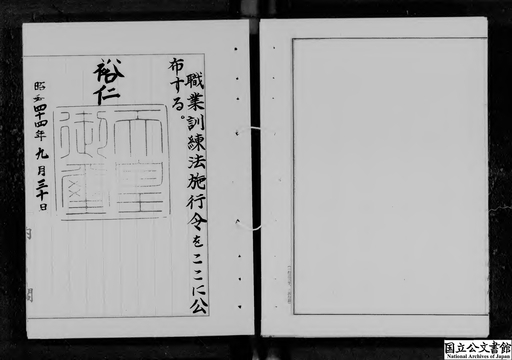 職業訓練法施行令をここに公
布する。
裕仁
天皇
御璽
昭和四十四年九月三十日
内閣
国立公文書館
National Archives of Japan